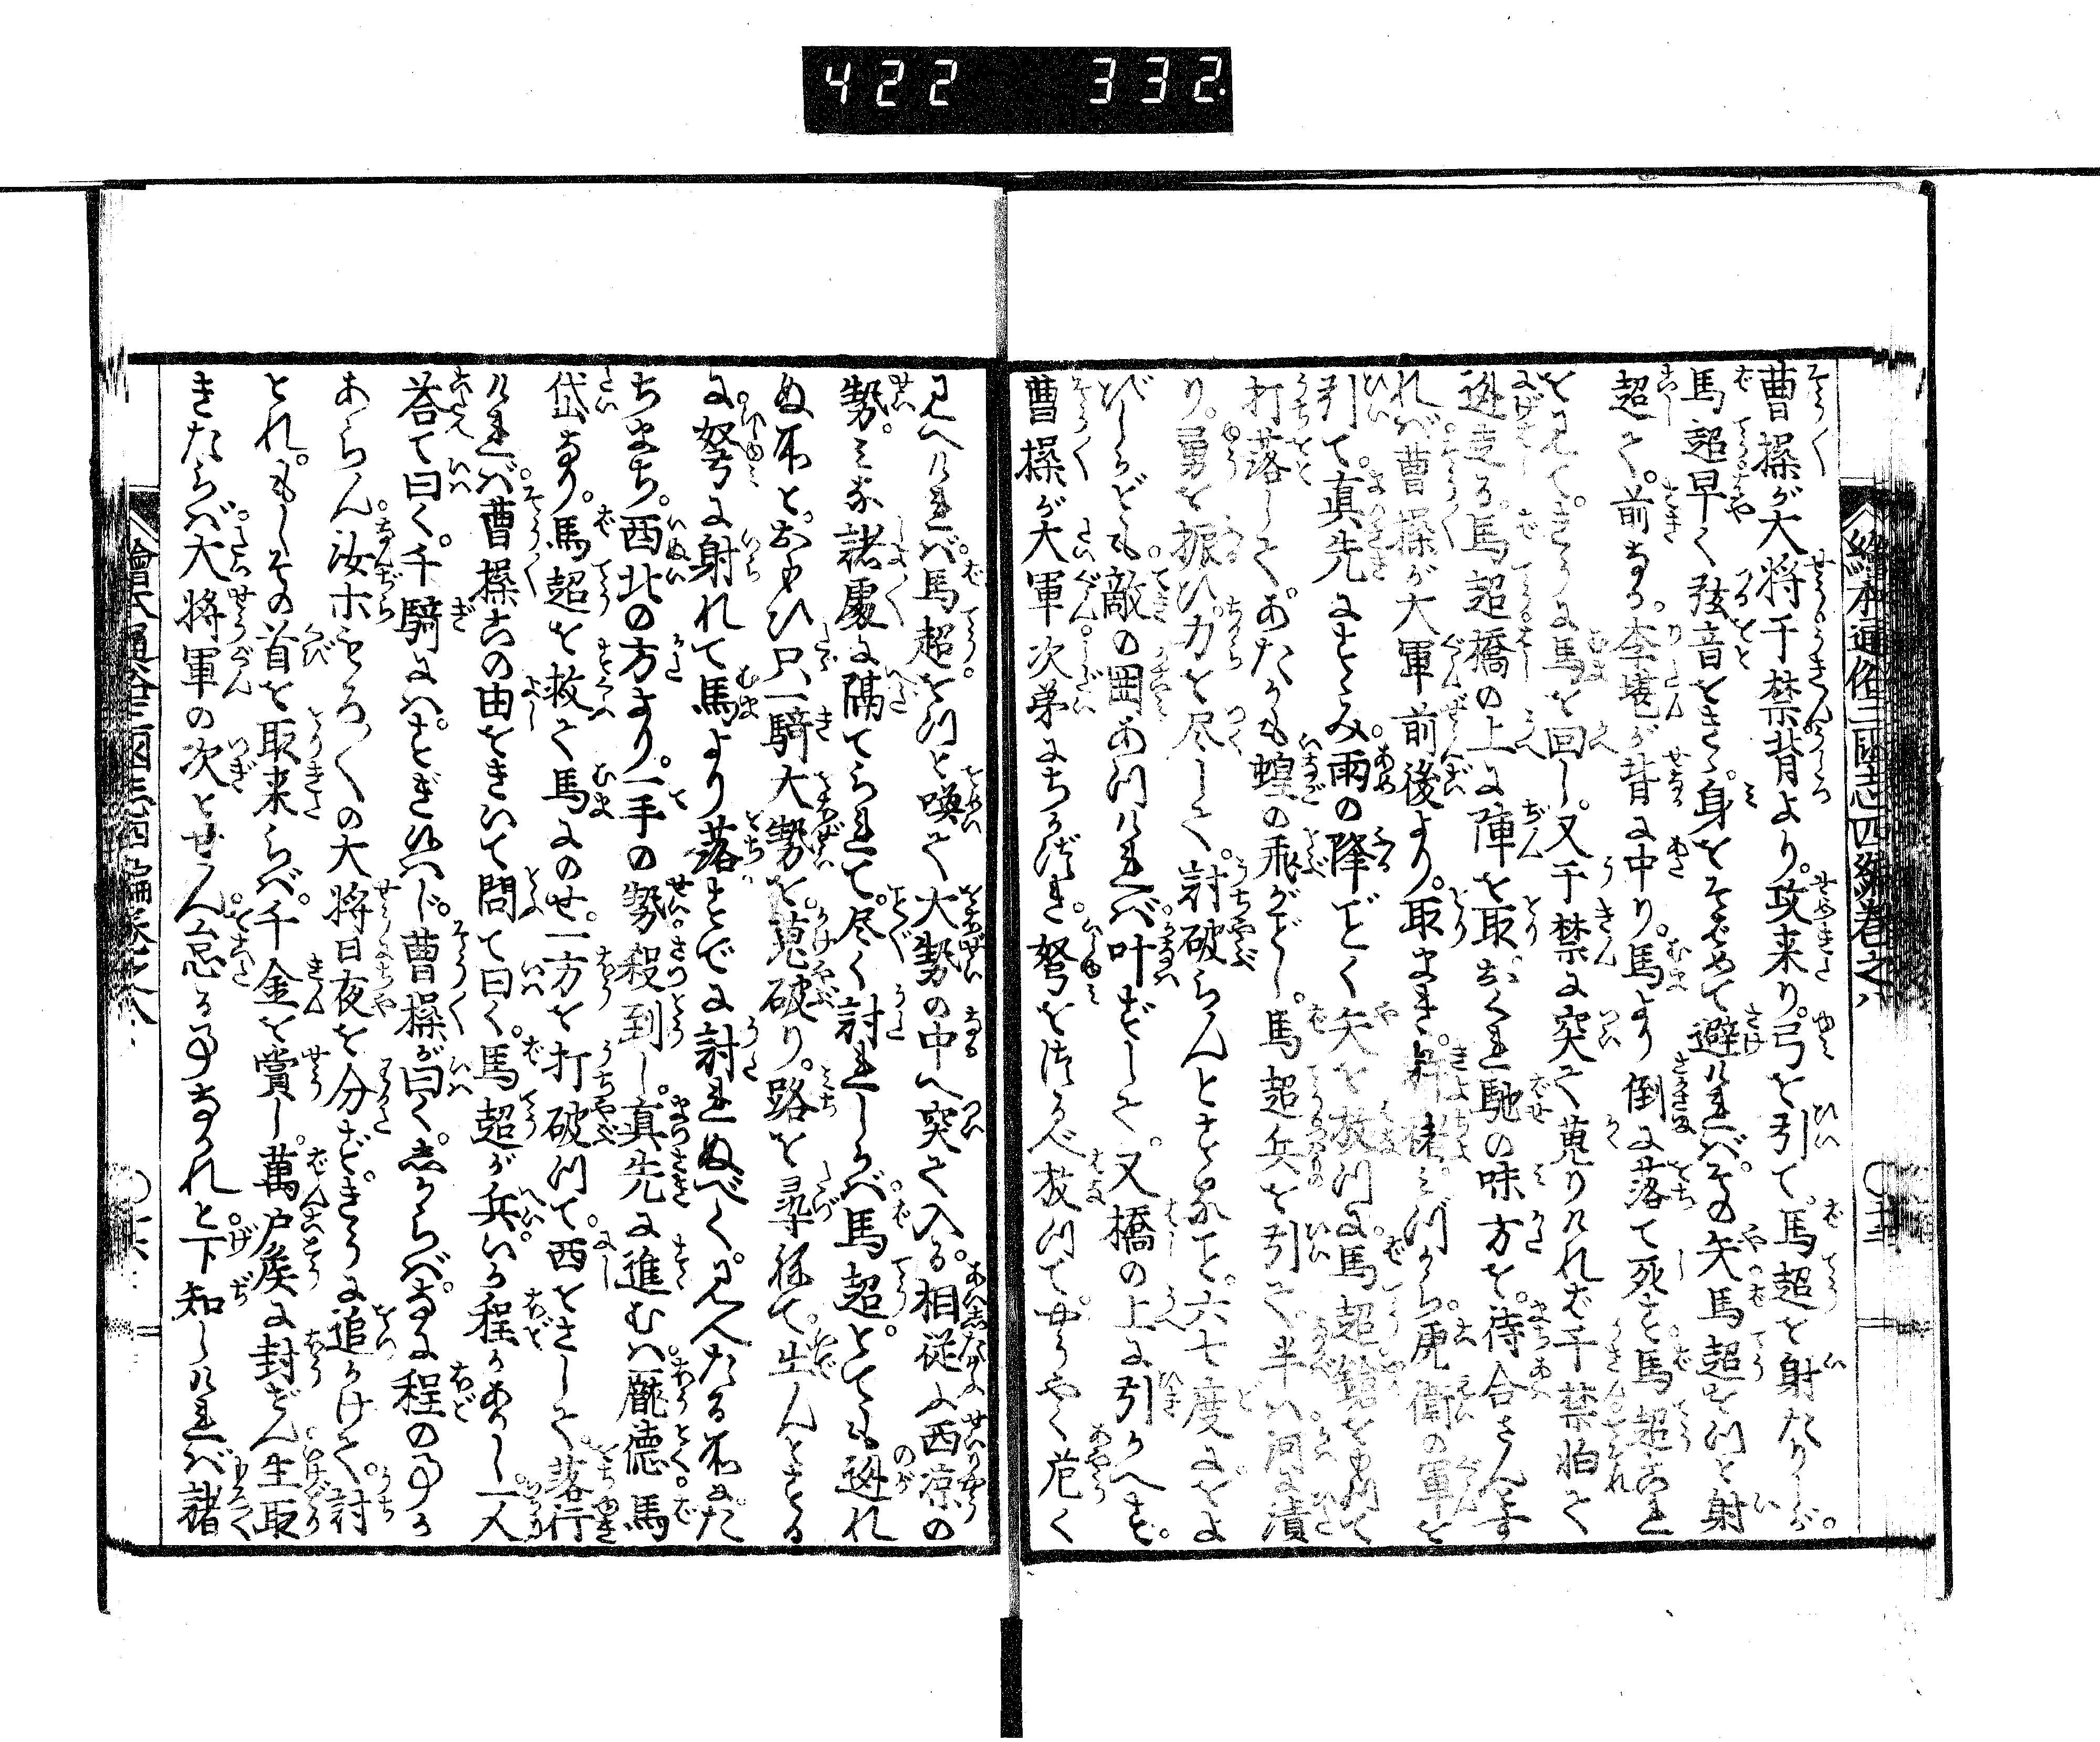 422 332.
繪本通俗三國志四編卷之八 〇十五
曹操が大将于禁背より。攻来り。弓を引て。馬超を射たりしが。
馬超早く弦音をきゝ。身をそばめて避ければ。その矢馬超をはづと射
超て。前なる。李堪が背に中り。馬より倒に落て死す。馬超これ
を見て。きうに馬を回し。又于禁に突て蒐りければ于禁怕て
逃走る。馬超橋の上に陣を取おくれ馳の味方を。待合さんとす
れば。曹操が大軍前後より。取まき。許褚みづから。虎衛の軍を
引て。真先にすゝみ。雨の降ごとく矢を放つに。馬超鎗をもつて
打落して。あたかも蝗の飛がごとし。馬超兵を引て。半ハ河に漬
り。勇を振ひ力を尽して。討破らんとすれど。六七度におよ
びしかども敵の囲あつければ。叶ずして。又橋の上に引かへす。
曹操が大軍次第にちかづき。弩をつるべ放つて。やうやく危く
見へければ。馬超をつと喚て大勢の中へ突て入る。相従ふ西凉の
勢。ミな諸處に隔てられて。尽く討れしかバ。馬超とても遁れ
ぬ所と。おもひ只一騎大勢を。蒐破り。路を尋ねて。出んとする
に。弩に射れて馬より落すでに討れぬべく。見へたる所にた
ちまち。西北の方より。一手の勢殺到し。真先に進むハ。龐徳馬
岱なり。馬超を救て馬にのせ。一方を打破つて。西をさして。落行
ければ。曹操この由をきいて問て曰く。馬超が兵。いか程かありし。一人
荅て曰く。千騎にハ。すぎ候ハじ。曹操が曰く。志からバ。なに程の事か
あらん。汝ホもろ〱の大将日夜を分ず。きうに追かけて。討
とれ。もしその首を取来らバ。千金を賞し。萬戸侯に封ぜん生取
きたらバ。大將軍の次とせん。忘るゝ事なかれと。下知しければ諸
繪本通俗三国志四編卷之八 〇十六